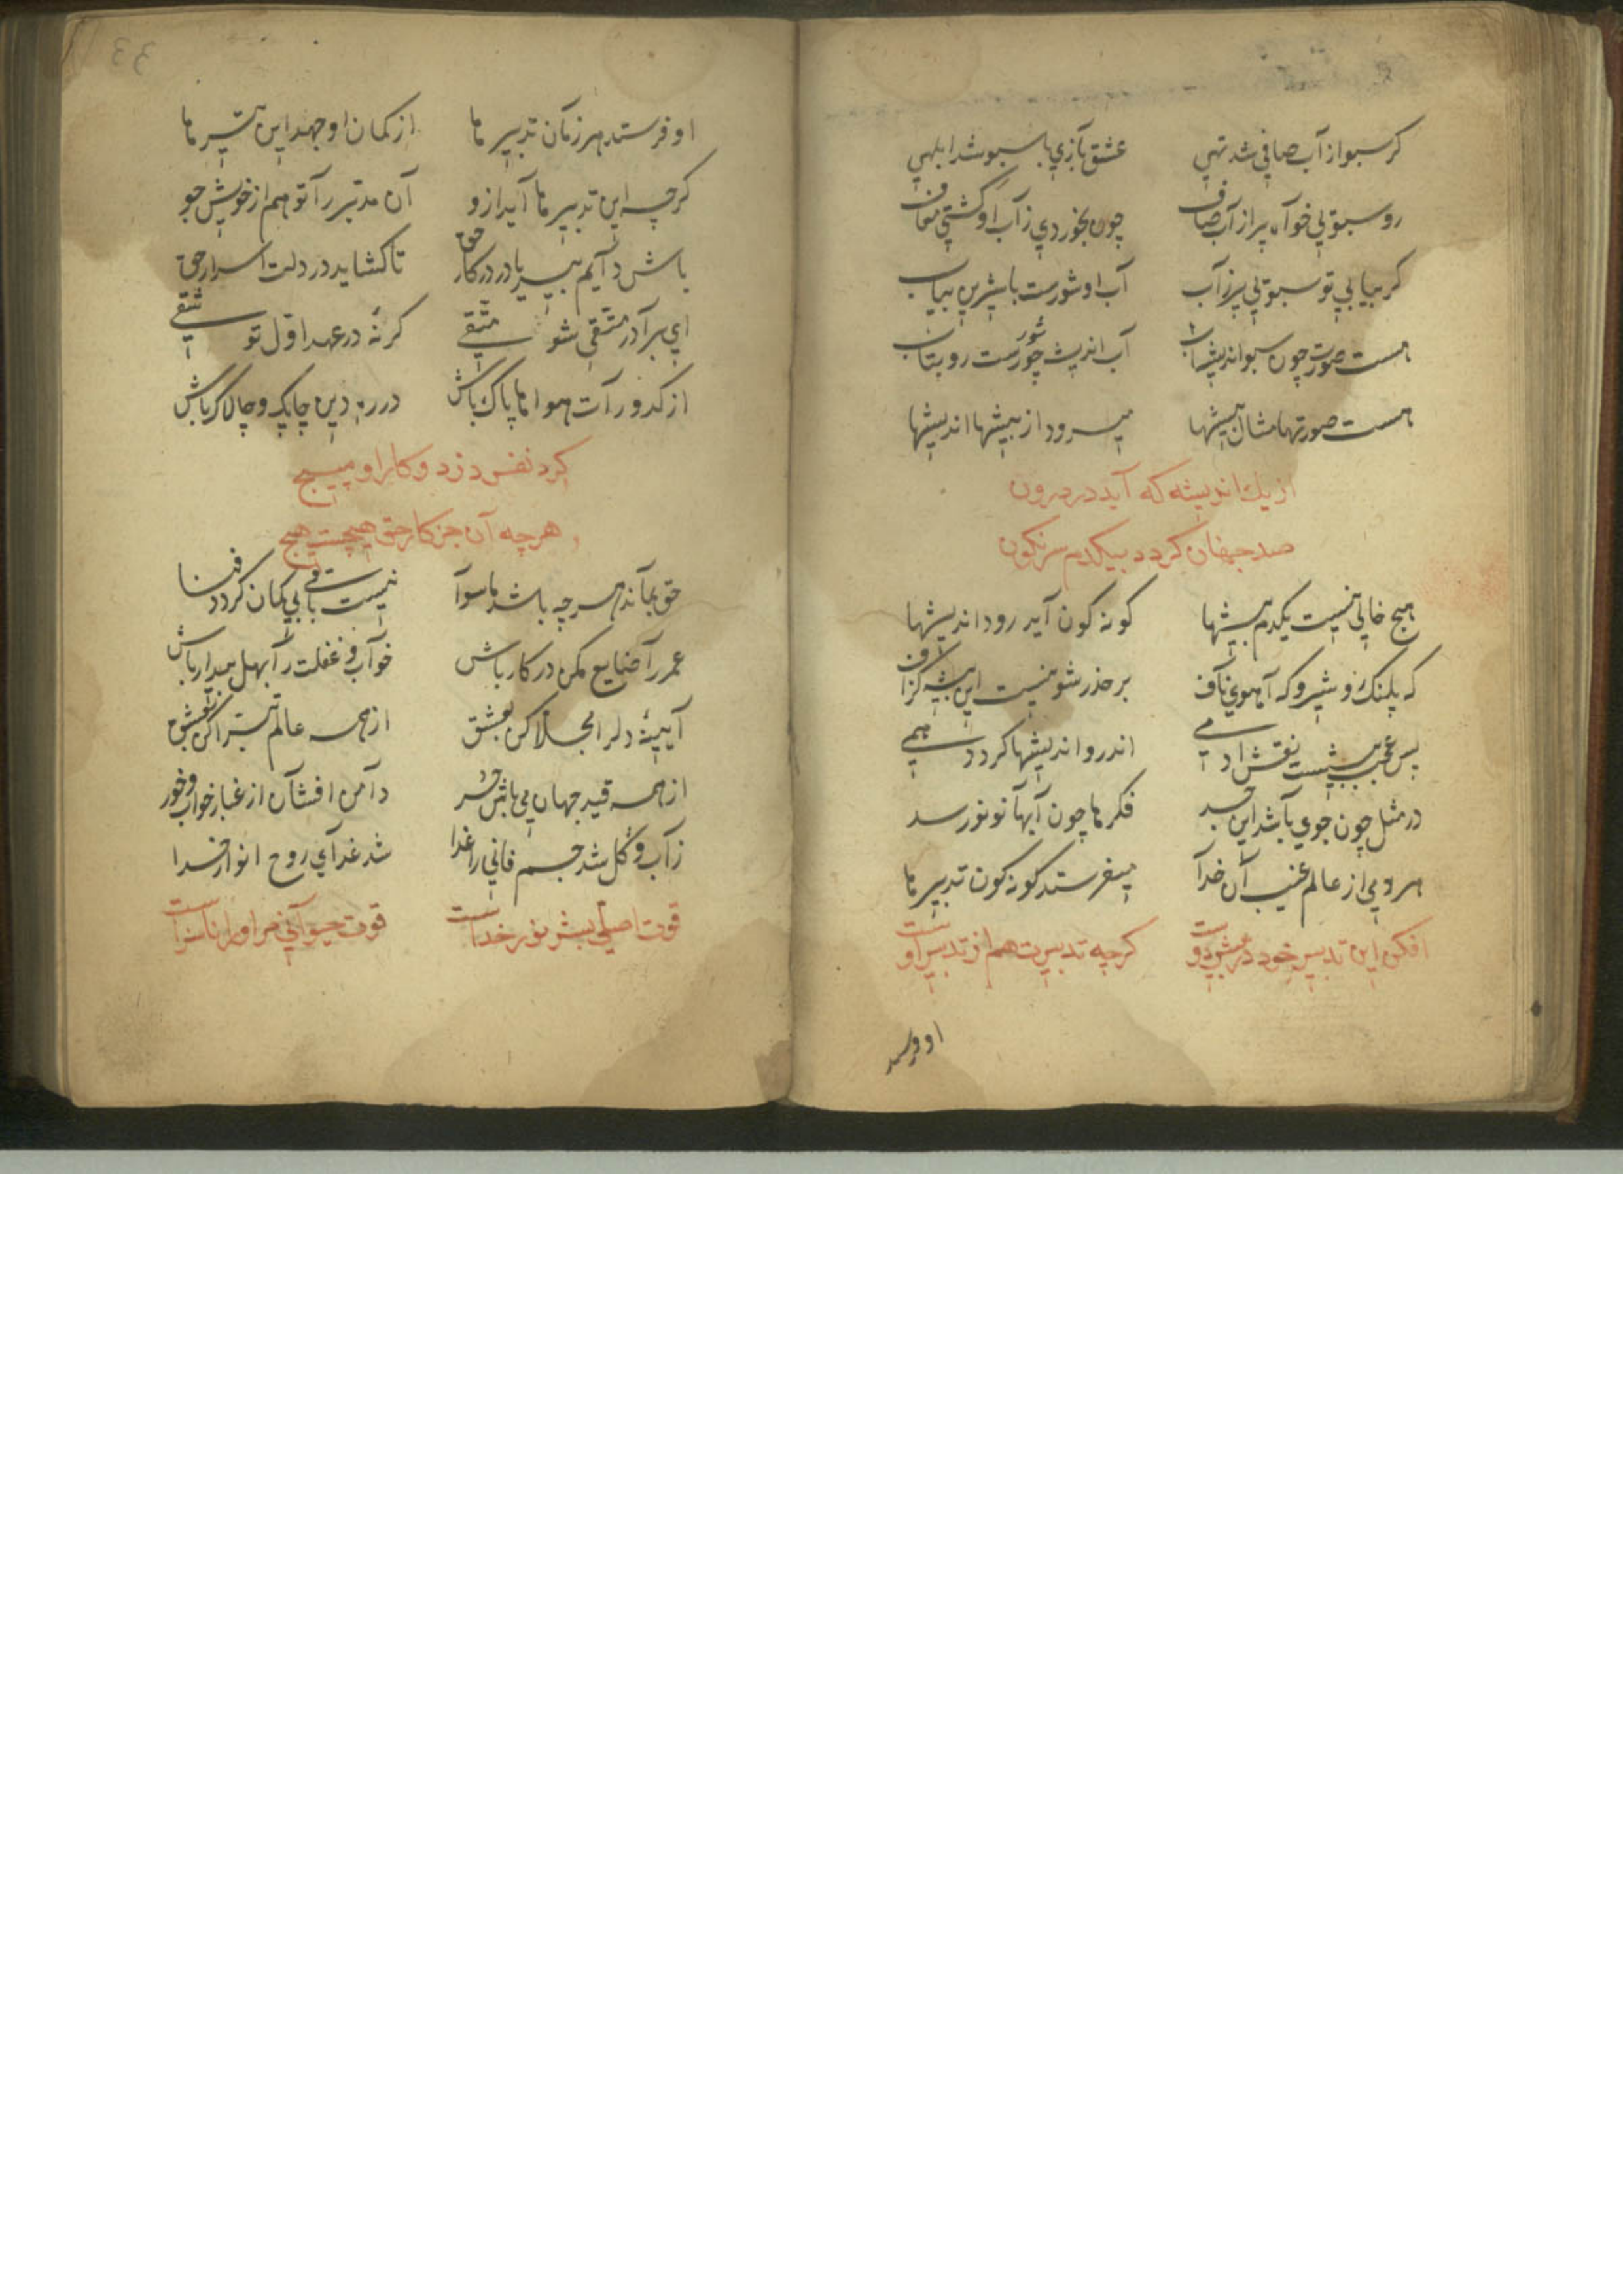 كر سبو از آب صافي شد تهي عشق بازي با سبو شد ابلهي
رو سبويي خواه پر از آب صاف چون بخوردي ز آب او كشتي معاف
كر بيابي تو سبويي پر ز آب آب او شورست با شيرين بياب
هست صورت چون سبو انديشه آب آب انديشه چو شورست رو بتاب
هست صورتها مثال بيشها ميرود از بيشها انديشها
از يك انديشه كه آيد در درون
صد جهان كردد بيكدم سرنكون
هيچ خالي نيست يكدم بيشها كونه كون آيد رود انديشها
كه پلنك و شير و كه آهوي ناف بر حذر شو نيست اين بيشه كزاف
پس عجب بيشيست نقش آدمي اندرو انديشها كردد همي
در مثل چون جوي باشد اين جسد فكرها چون آبها نو نو رسد
هر دمي از عالم غيب آن خدا ميفرستد كونه كون تدبير ما
افكن اين تدبير خود در پيش دوست كرچه تدبيرت هم از تدبير اوست
او فرستد
او فرستد هر زمان تدبير ما از كمان او جهد اين تير ما
كرچه اين تدبير ما آيد ازو آن مدبر را تو هم از خويش جو
باش دايم بيريا در كار حق تا كشايد در دلت اسرار حق
اي برادر متقي شو متقي كرنه در عهد اول تو شقي
از كدورات هوا ها پاك باش در ره دين چابك و چالاك باش
كرد نفس دزد و كار او مپيچ
هرچه آن جز كار حق هيچست هيچ
حق بماند هرچه باشد ما سوا نيست باقي بي كمان كردد فنا
عمر را ضايع مكن در كار باش خواب و غفلت را بهل بيدار باش
آيينه دل را مجلا كن بعشق از همه عالم تبرا كن بعشق
از همه قيد جهان مي باش حر دامن افشان از غبار خواب و خور
ز آب و كل شد جسم فاني را غدا شد غداي روح انوار خدا
قوت اصلي بشر نور خداست قوت حيواني مر او را ناسزاست